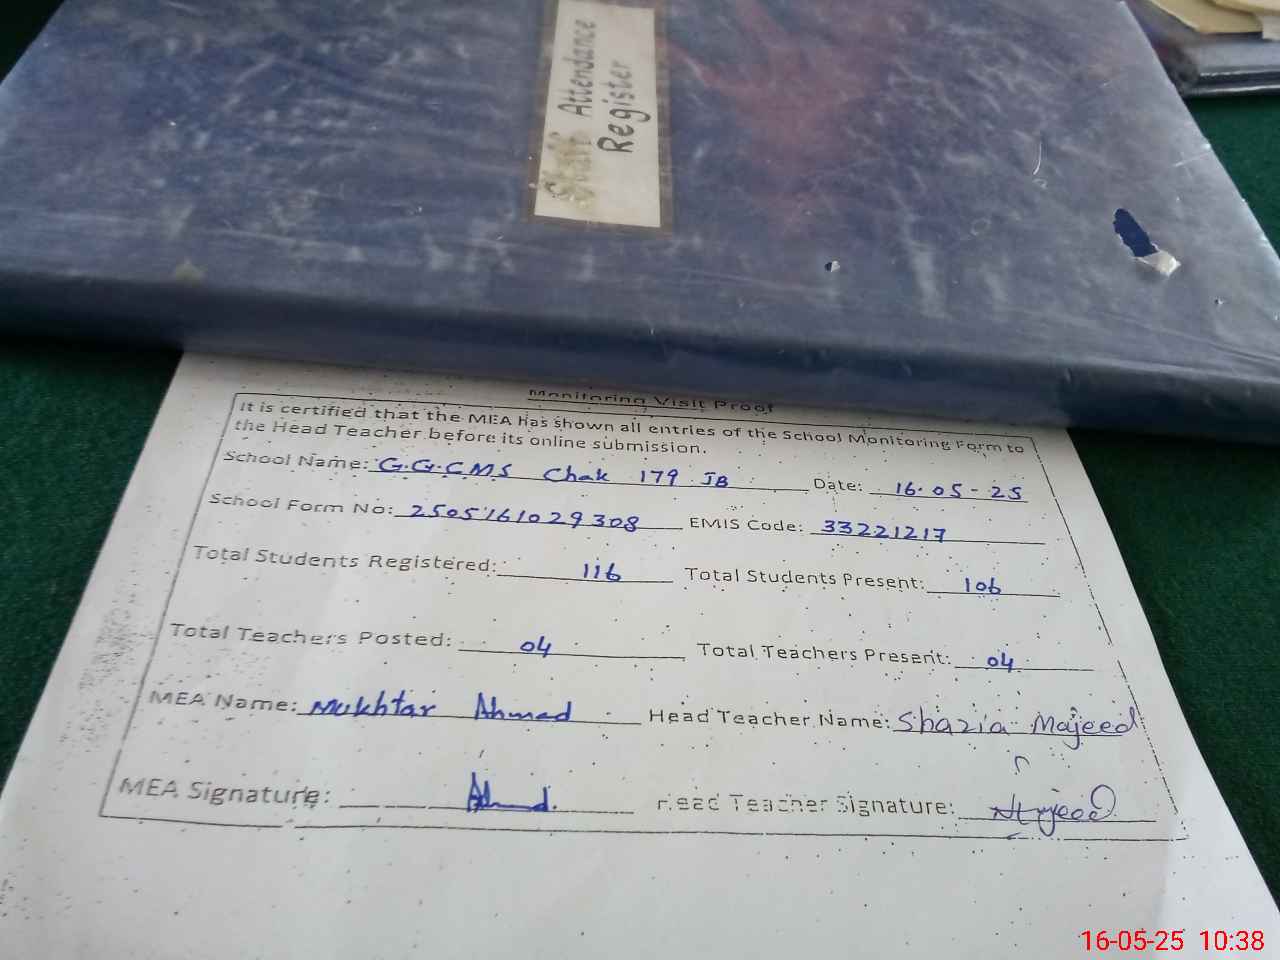 Staff Attendance
Register
Monitoring Visit Proof
It is certified that the MEA has shown all entries of the School Monitoring Form to
the Head Teacher before its online submission.
School Name: G.G.C.M.S Chak 179 JB Date: 16-05-25
School Form No: 2505161029308 EMIS Code: 33221217
Total Students Registered: 116 Total Students Present: 106
Total Teachers Posted: 04 Total Teachers Present: 04
MEA Name: Mukhtar Ahmad Head Teacher Name: Shazia Majeed
MEA Signature: Head Teacher Signature:
16-05-25 10:38